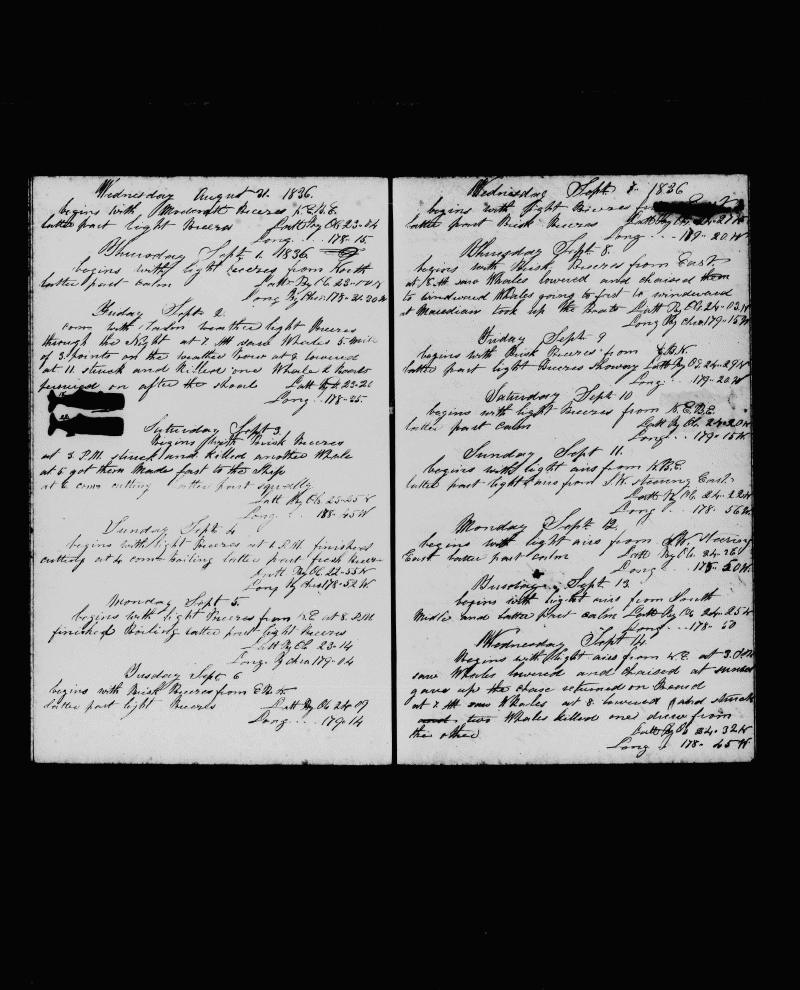 Wednesday August 31. 1836.
begins with Moderate Breezes N.E.B.E.
latter part light Breezes Latt By Ob 23-24
Long... 178-15
Thursday Sept 1. 1836
begins with light breezes from North
latter part calm Latt By Ob 23-00
Long By Chro 178-21.30 W
Friday Sept. 2.
com with weather light Breezes
through the Night at 7 AM saw Whales 5 mile
of 3 points on the weather bow at 8 lowered
at 11. struck and killed one Whale & Boats
on after the shoals Latt By 23-26
Long. 178-25.
Saturday Sept 3.
Begins with Brisk Breezes
at 3 P.M. struck and killed another Whale
at 5 got them Made fast to the Ship
at 6 com cutting latter part squally
Latt By Ob 23-25
Long 45 W
Sunday Sept. 4
begins with light Breezes at 1 P.M. finished
cutting at 4 com boiling latter part fresh Breeze
Latt By Ob 22-55
Long By Chro 178-52 W
Monday Sept 5.
begins with light Breezes from N.E. at 8. P.M.
finished Boiling latter part light Breezes
Latt By Ob 23-14
Long. By Chro 179-04
Tuesday Sept 6
begins with Brisk Breezes from
latter part light Breezes Latt By Ob 24-09
Long.... 179-14
Wednesday Sept 7. 1836
begins with light Breezes from East
latter part Brisk Breezes Latt By 24-27
Long... 179-20 W
Thursday Sept. 8.
begins with Brisk Breezes from East
at 8 AM saw Whales lowered and chaised them
to windward Whales going to fast to windward
at Meredian took up the Boats Latt By Ob 24-03
Long By Chro 179-15 W
Friday Sept. 9
begins with Brisk Breezes from
latter part light Breezes Showery Latt By Ob 24-29
Long. 179-20 W
Saturday Sept. 10
begins with light Breezes from N.E.B.E.
latter part calm Latt By Ob. 24-20
Long. 179-15 W
Sunday Sept 11.
begins with light airs from N.B.E.
latter part light airs from S.W. Steering East.
Latt By Ob. 24-22
Long. 178-56 W
Monday Sept. 12.
begins with light airs from S.W. Steering
East latter part calm Latt By Ob. 24-26
Long. 178-50 W.
Tuesday Sept 13.
begins with light airs from South
Middle and latter part calm Latt By Ob 24-25
Long... 178-50
Wednesday Sept 14
Begins with light airs from N.E. at 3. P.M.
saw Whales lowered and chaised at sunset
gave up the chase returned on Board
at 7. AM saw Whales at 8 lowered and struck
and two Whales killed one drew from
the other Latt By Ob 24-32
Long. 178-45 W